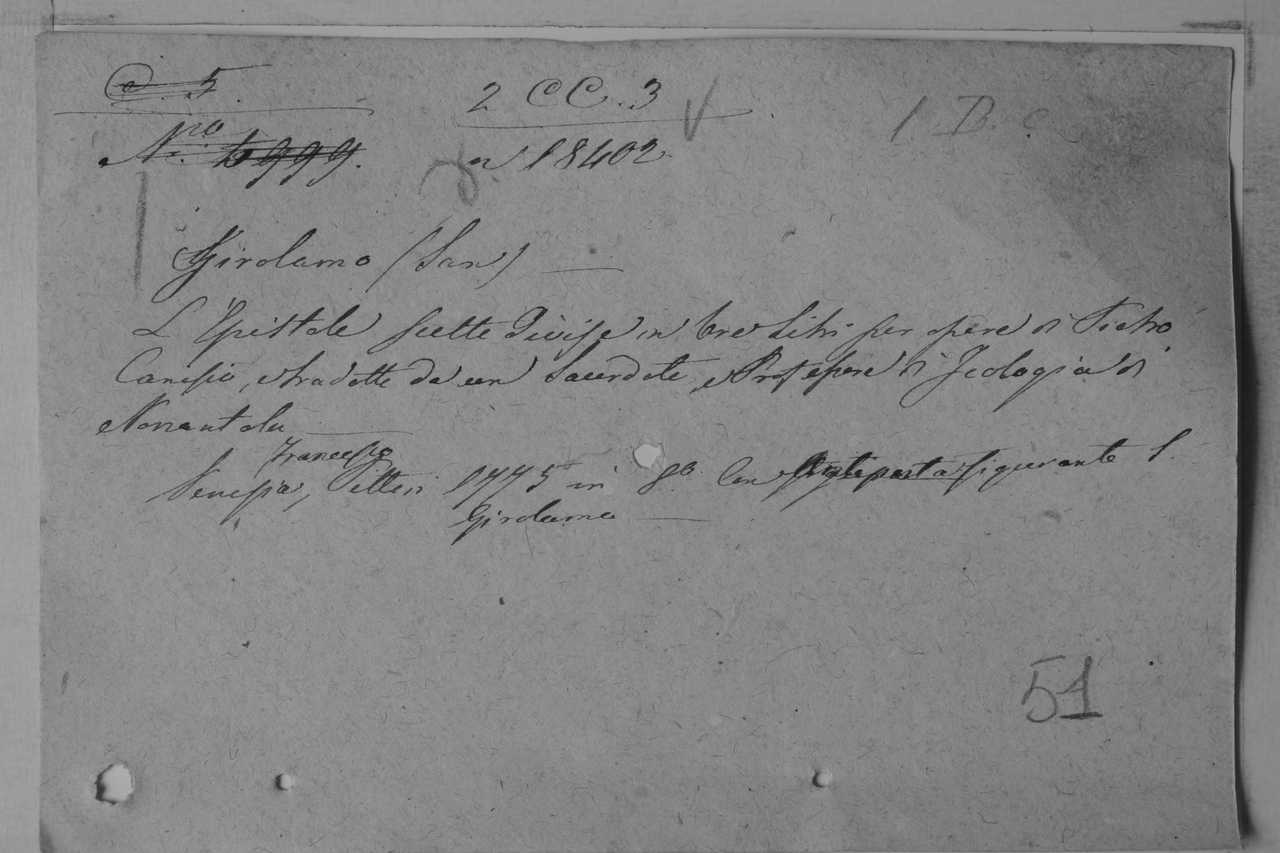 C. 5. 2 CC. 3 V 1 B. c
Nro 6999. n 18402
Girolamo (San)
L'Epistole scelte divise in tre Libri per opera di Pietro
Canisio, e tradotte da un Sacerdote, e Professore di Teologia di
Nonantola
Francesco
Venezia, Pitteri 1775 in 8o. Con Antiporta figurante S.
Girolamo
51